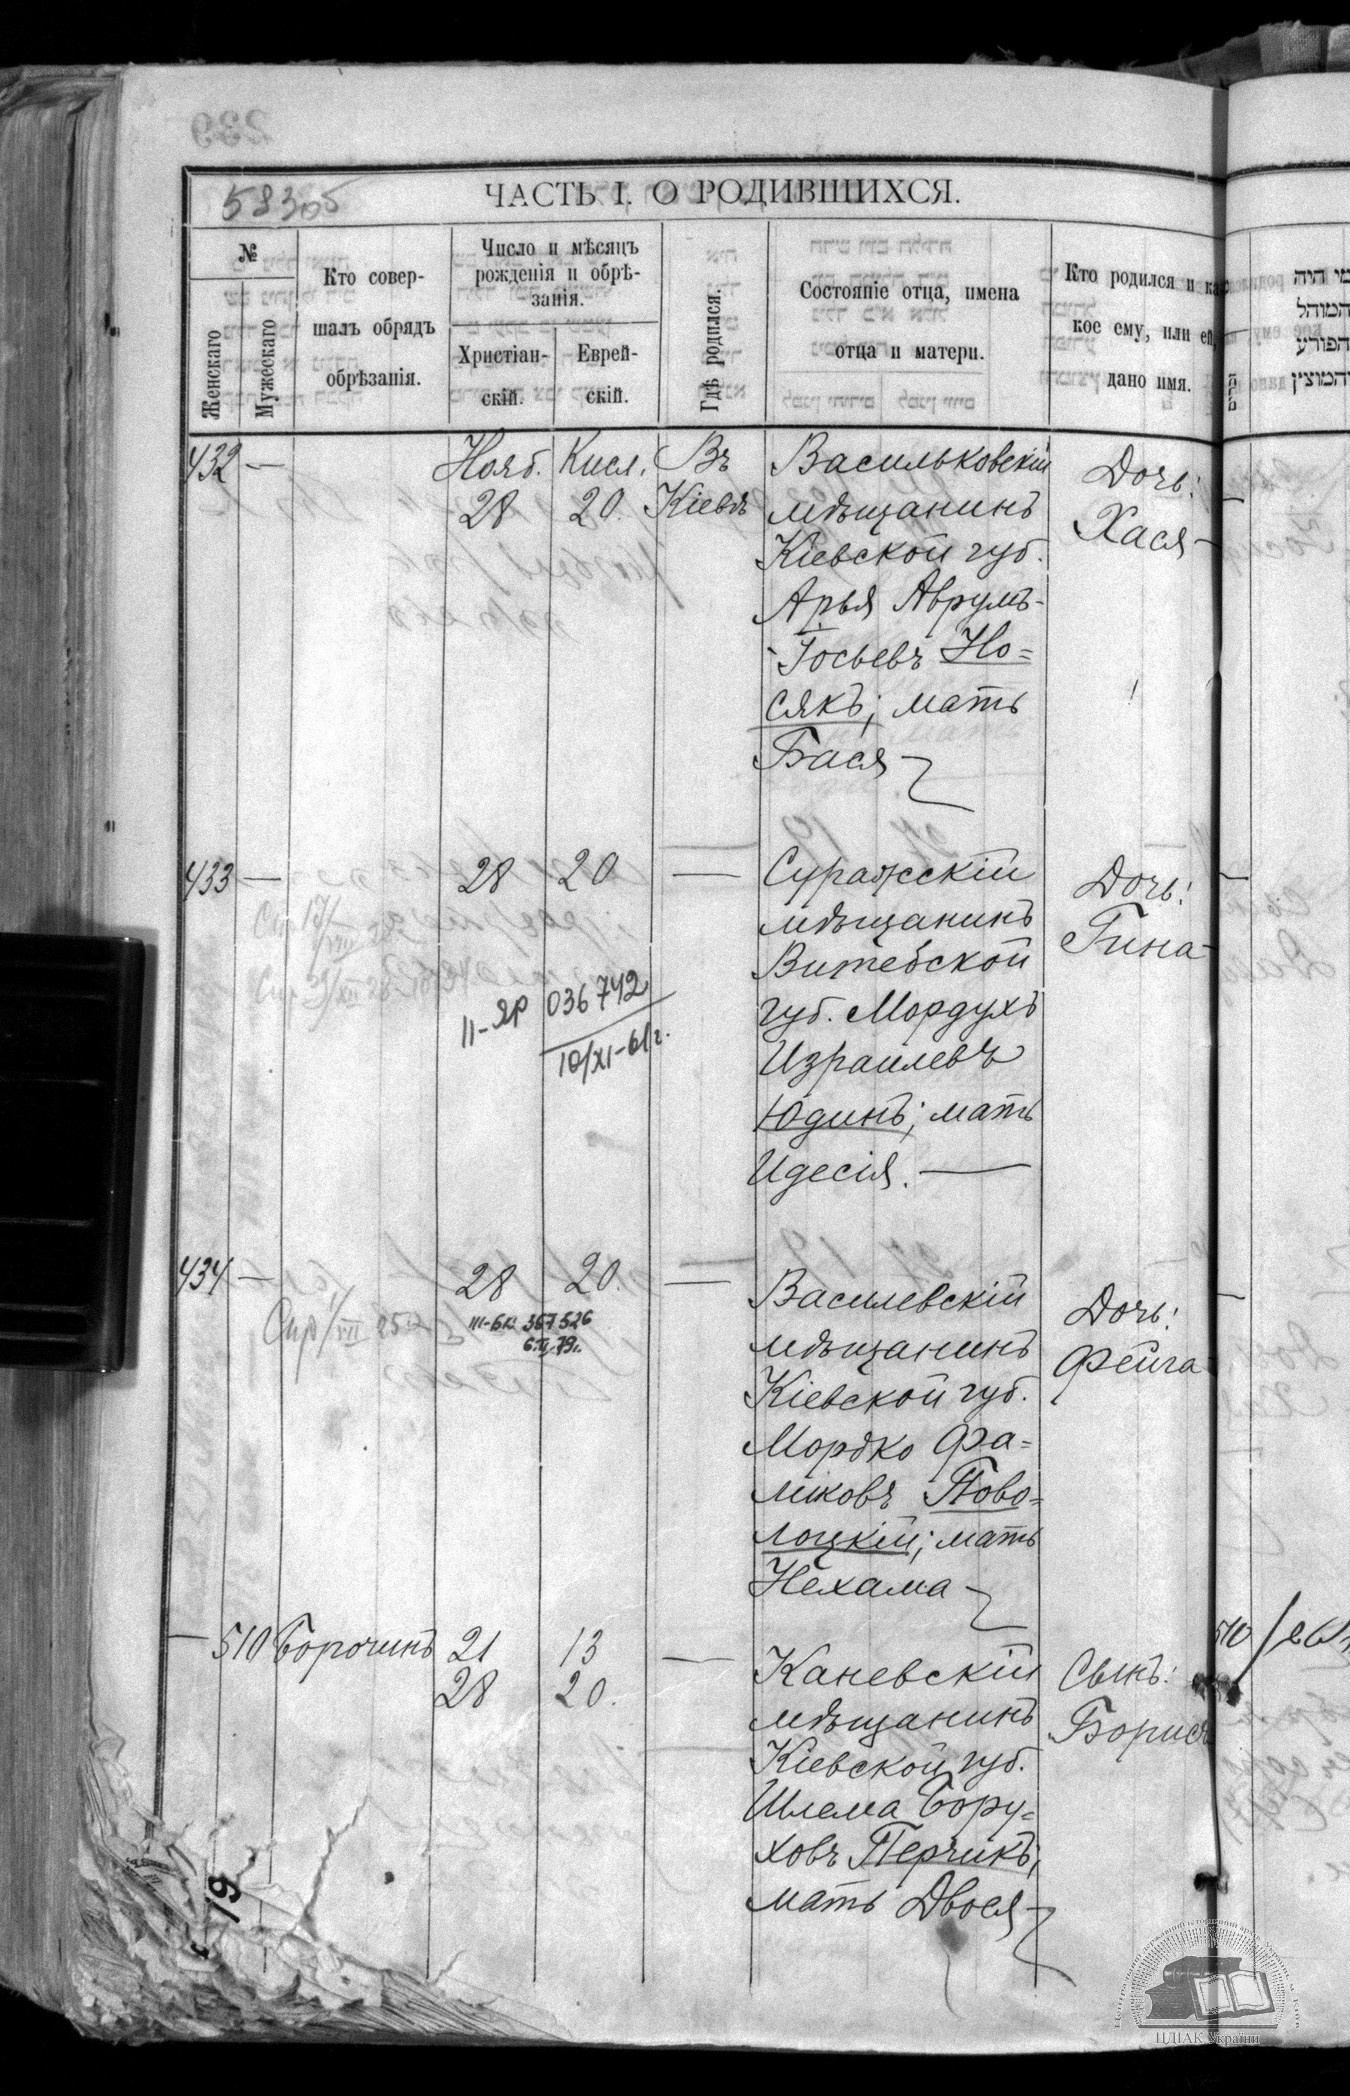 239
583об
ЧАСТЬ I. О РОДИВШИХСЯ.
№
Женскаго
Мужескаго
Кто совер-
шалъ обрядъ
обрѣзанія.
Число и мѣсяцъ
рожденія и обрѣ-
занія.
Христіан-
скій.
Еврей-
скій.
Гдѣ родился.
Состояніе отца, имена
отца и матери.
Кто родился и ка-
кое ему, или ей,
дано имя.
מי היה
המוהל
הפורע
והמוצץ
432 —
Нояб.
28
Кисл.
20.
Въ
Кіевѣ
Васильковскій
мѣщанинъ
Кіевской губ.
Арья Аврумъ-
-Іосьевъ Но=
сякъ; мать
Бася
Дочь:
Хася
433 —
28
20
—
Суражскій
мѣщанинъ
Витебской
губ. Мордухъ
Израилевъ
Юдинъ; мать
Идесія. —
Дочь:
Гина
II-ЯР 036742
10/XI-61г.
434 —
28
20.
—
III-БК 367526
Василевскій
мѣщанинъ
Кіевской губ.
Мордко Фа=
ликовъ Пово=
лоцкій; мать
Нехама
Дочь:
Фейга
— 510
Борочинъ
21
28
13
20.
—
Каневскій
мѣщанинъ
Кіевской губ.
Шлема Бору=
ховъ Перчикъ;
мать Двося
Сынъ:
Борисъ
510
19
ЦДІАК України